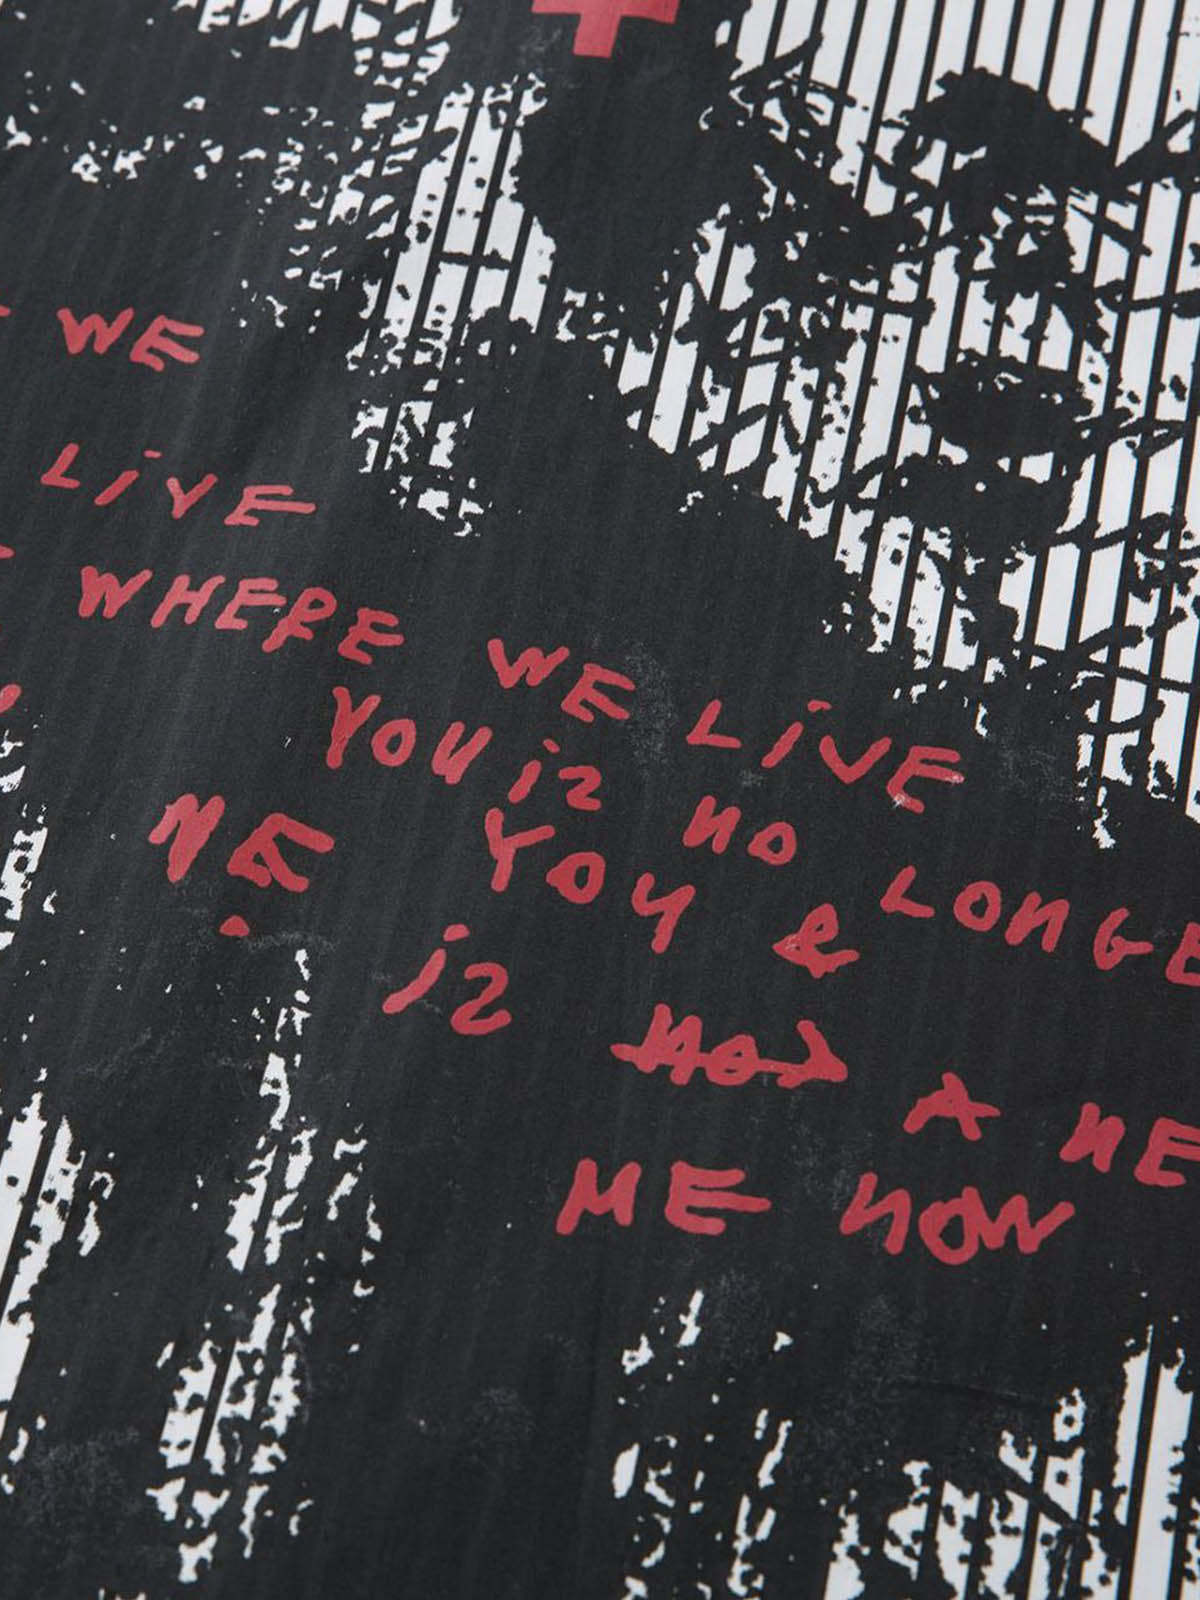 WE
LiVE
WHERE WE LiVE
YOU iz NO LONGE
ME YOU &
iz NOT A NE
ME NOW